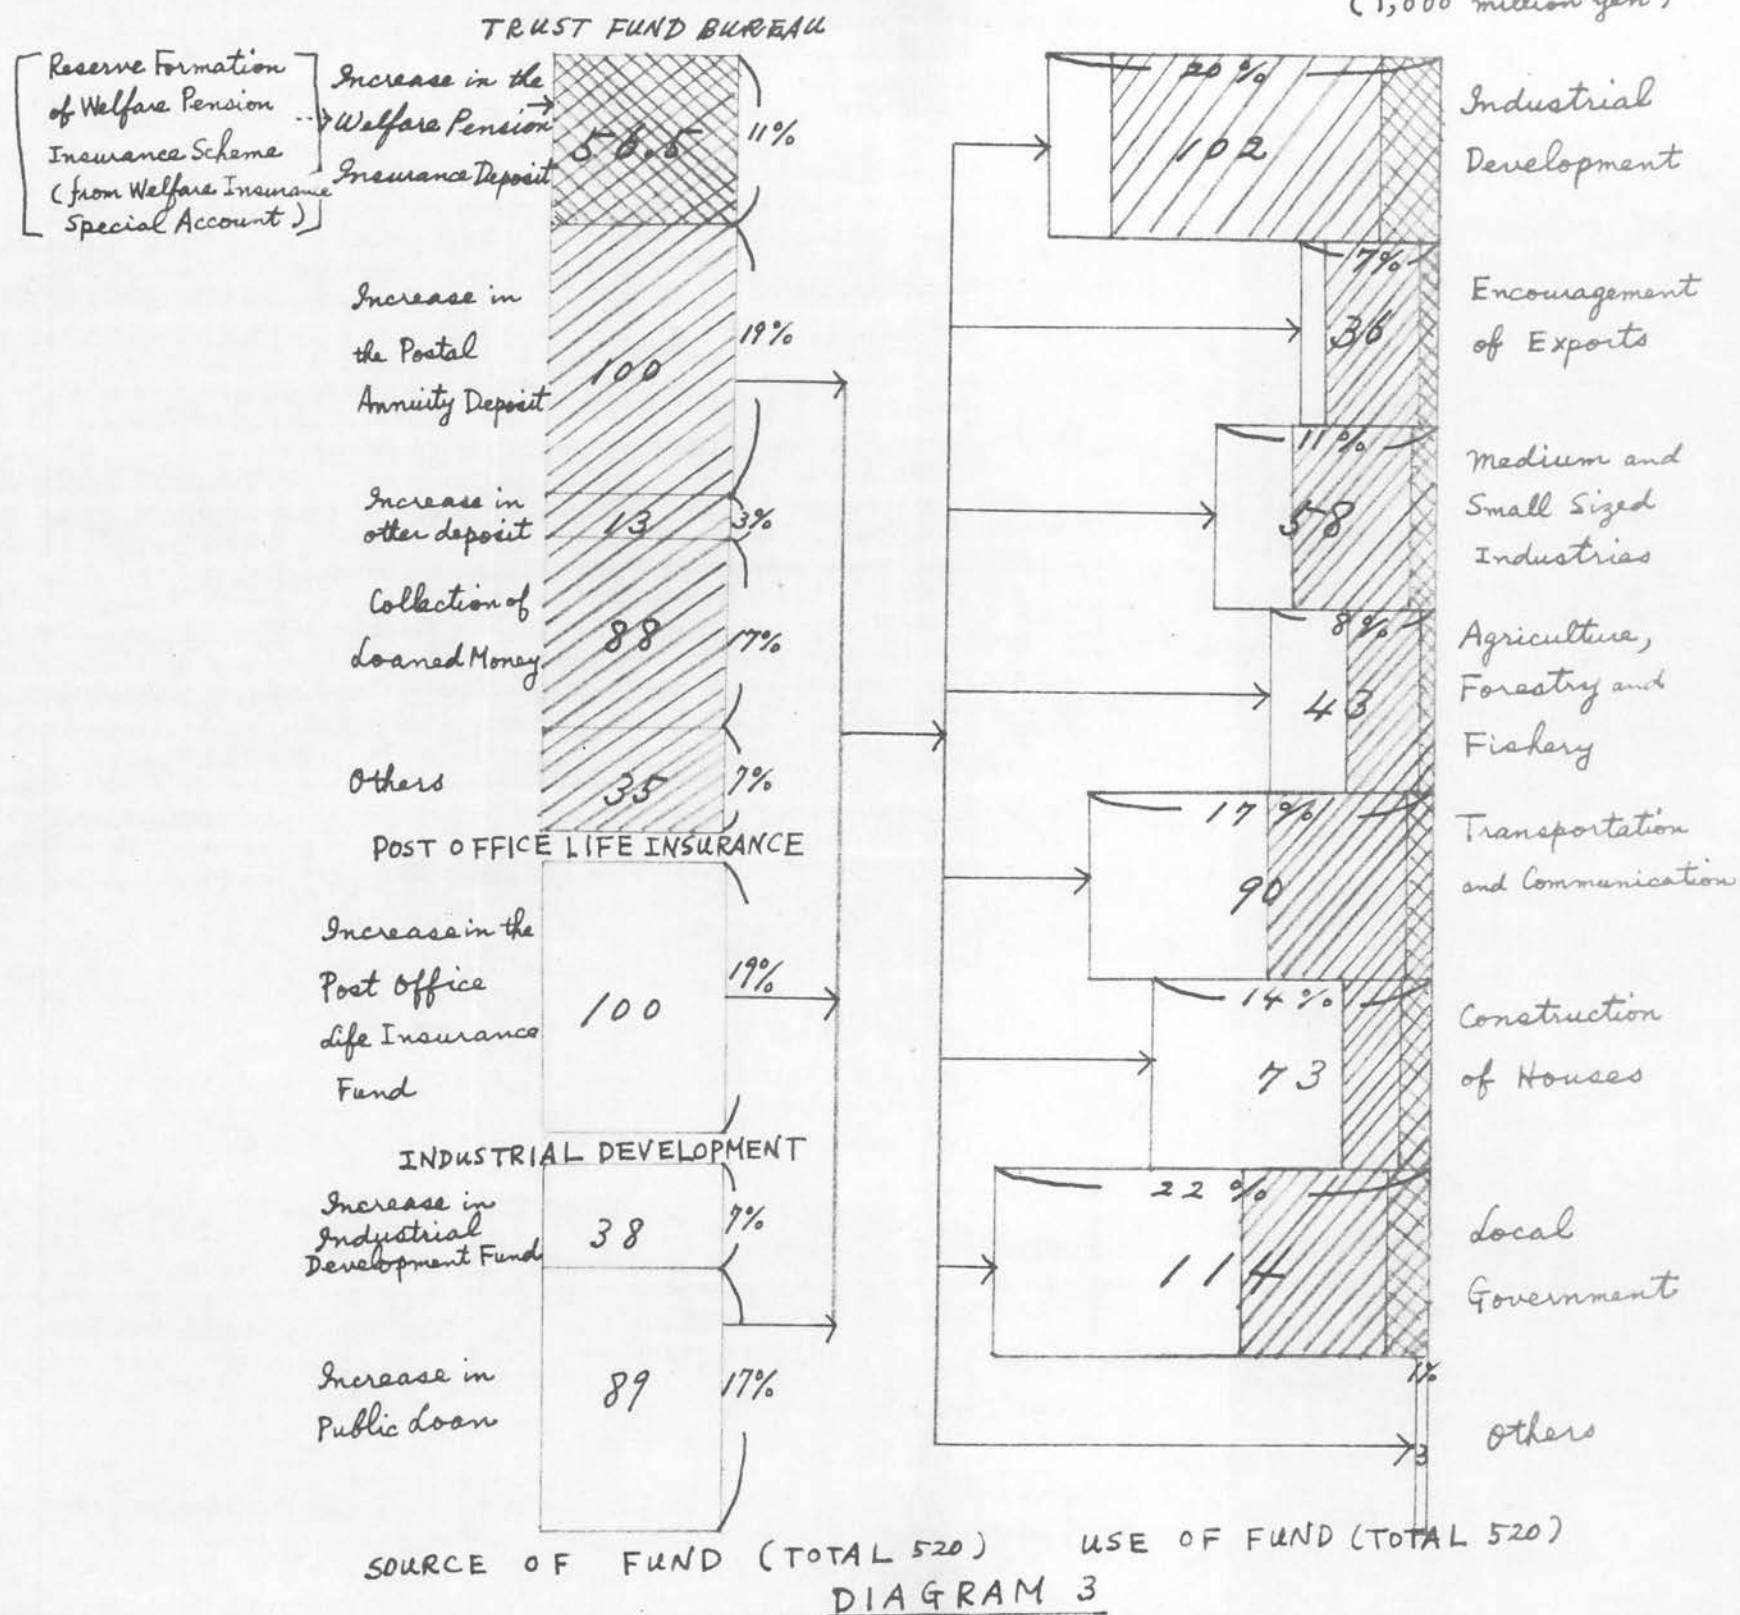 (1,000 million yen)
TRUST FUND BUREAU
Reserve Formation
of Welfare Pension
Insurance Scheme
(from Welfare Insurance
Special Account)
Increase in the
Welfare Pension
Insurance Deposit
56.5
11%
Increase in
the Postal
Annuity Deposit
100
19%
Increase in
other deposit
13
3%
Collection of
Loaned Money
88
17%
Others
35
7%
POST OFFICE LIFE INSURANCE
Increase in the
Post Office
Life Insurance
Fund
100
19%
INDUSTRIAL DEVELOPMENT
Increase in
Industrial
Development Fund
38
7%
Increase in
Public Loan
89
17%
SOURCE OF FUND (TOTAL 520)
20%
102
Industrial
Development
7%
36
Encouragement
of Exports
11%
58
Medium and
Small Sized
Industries
8%
43
Agriculture,
Forestry and
Fishery
17%
90
Transportation
and Communication
14%
73
Construction
of Houses
22%
114
Local
Government
1%
3
Others
USE OF FUND (TOTAL 520)
DIAGRAM 3